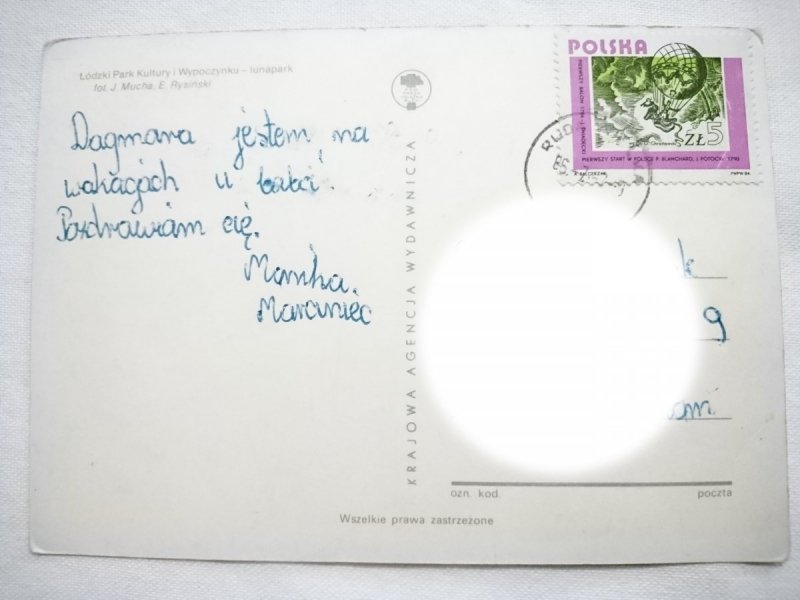 Łódzki Park Kultury i Wypoczynku – lunapark
fot. J. Mucha, E. Rysiński
Dagmara jestem na
wakacjach u babci.
Pozdrawiam cię.
Marciniec
KRAJOWA AGENCJA WYDAWNICZA
POLSKA
PIERWSZY BALON 1784 - J. ŚNIADECKI
ZŁ 5
PIERWSZY START W POLSCE P. BLANCHARD, J. POTOCKI, 1790
PWPW 84
9
ozn. kod. poczta
Wszelkie prawa zastrzeżone